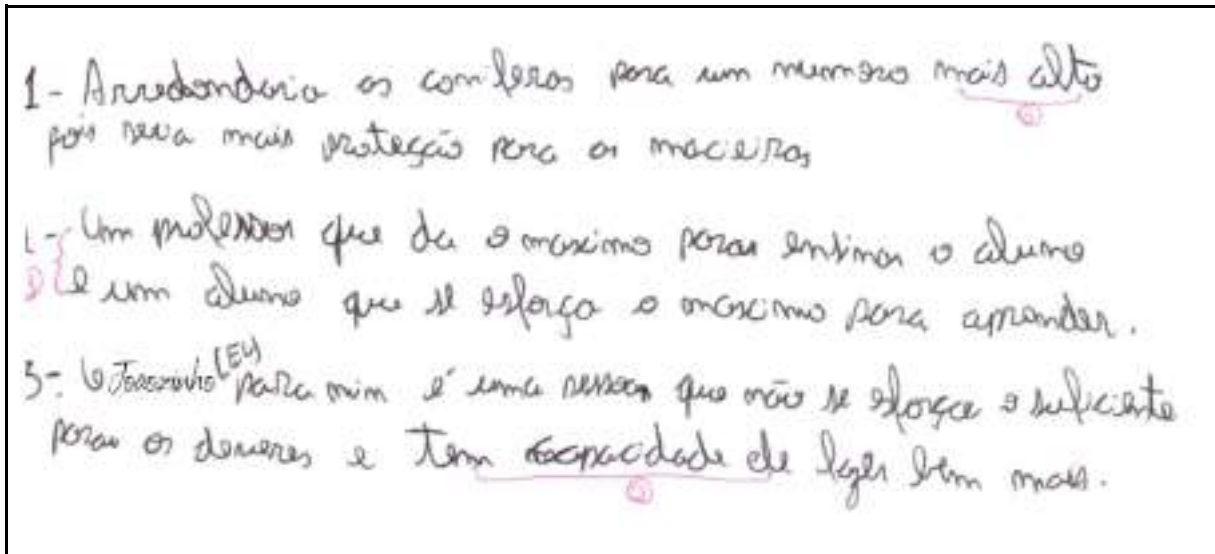 1- Arredondaria os coniferos para um numero mais alto
pois seria mais proteção para as macieiras
2- Um professor que da o maximo para ensinar o aluno
e um aluno que se esforça o maximo para aprender.
3- O Joaozinho (EU) para mim é uma pessoa que não se esforça o suficiente
para os deveres e tem capacidade de fazer bem mais.